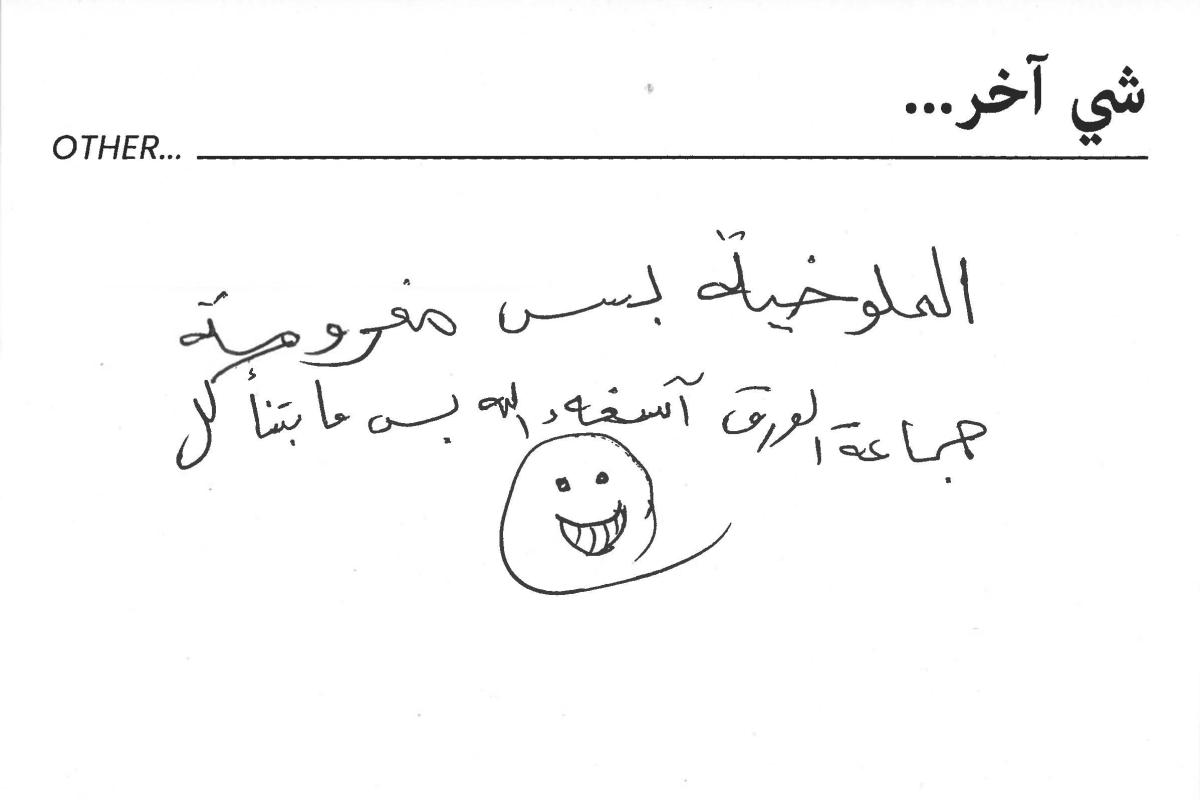 شي آخر...
OTHER...
الملوخية بس مفرومة
جماعة الورق آسفه والله بس ما بتنأكل